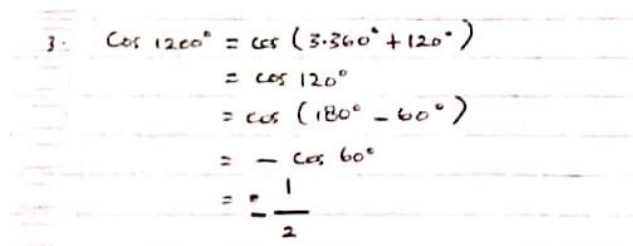 3. Cos 1200° = cos (3.360° + 120°)
= cos 120°
= cos (180° - 60°)
= - cos 60°
= - 1/2